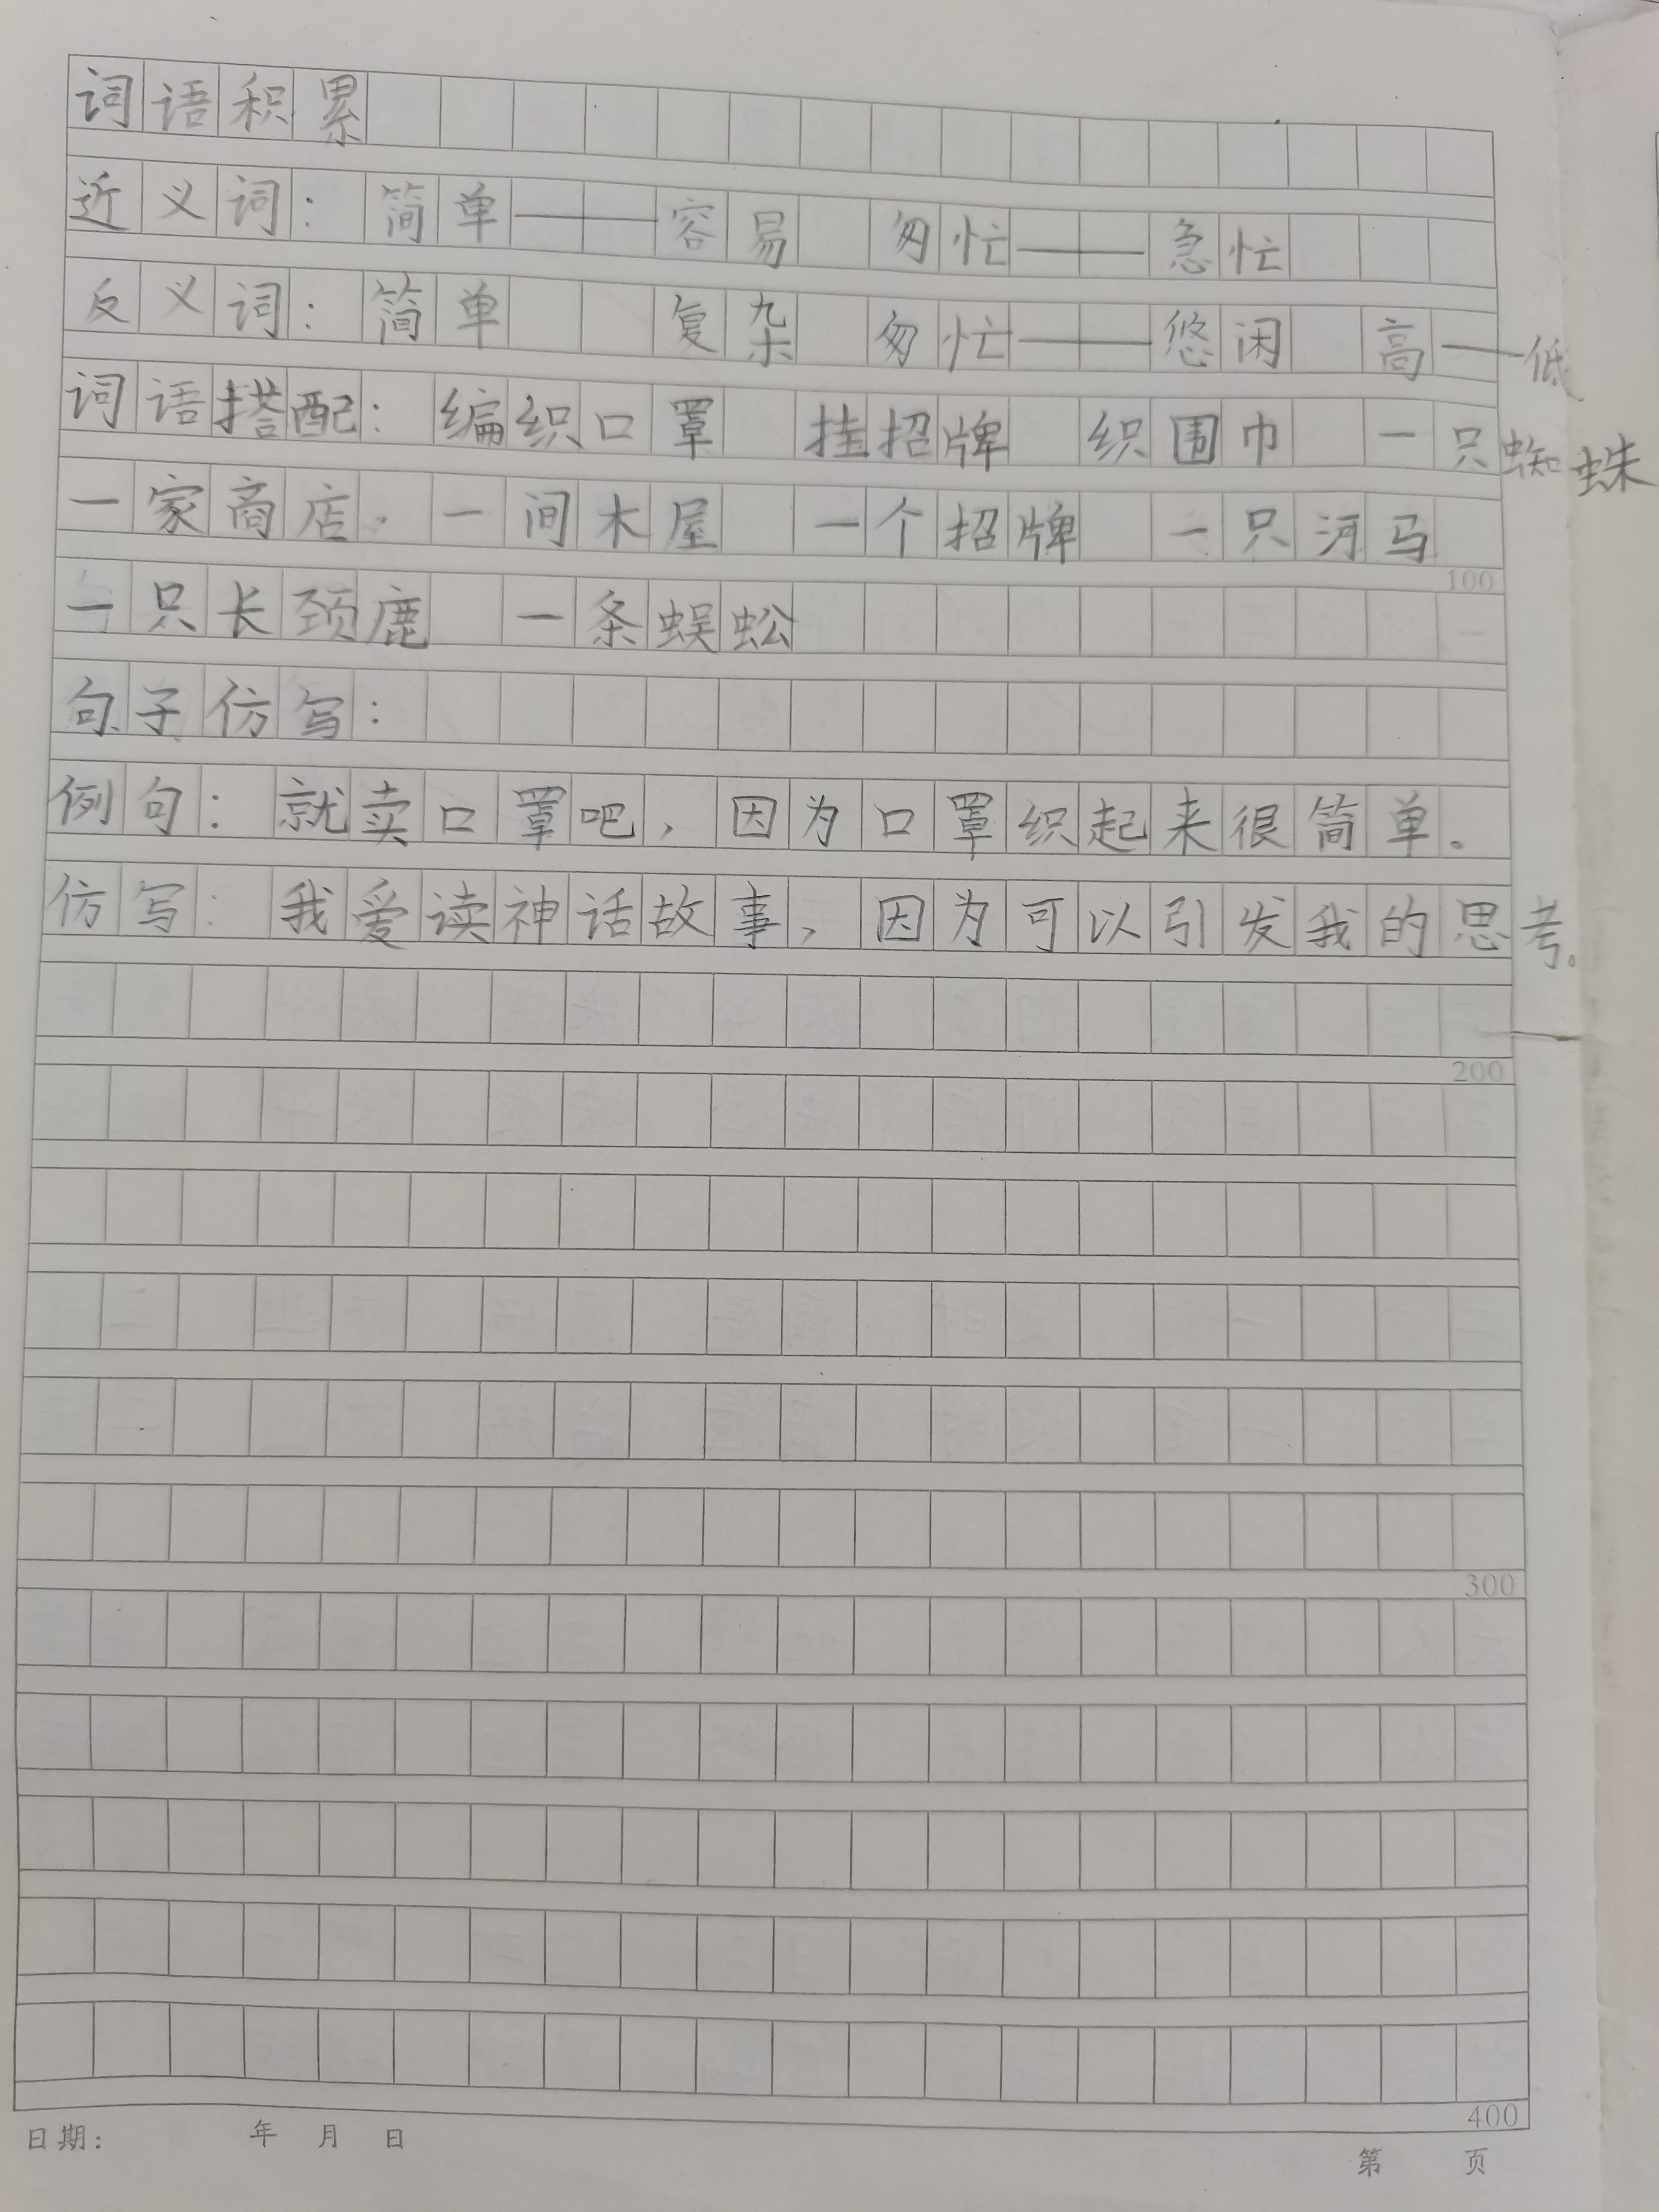 词语积累
近义词：简单——容易 匆忙——急忙
反义词：简单 复杂 匆忙——悠闲 高——低
词语搭配：编织口罩 挂招牌 织围巾 一只蜘蛛
一家商店. 一间木屋 一个招牌 一只河马
100
一只长颈鹿 一条蜈蚣
句子仿写：
例句：就卖口罩吧，因为口罩织起来很简单。
仿写：我爱读神话故事，因为可以引发我的思考。
200
300
400
日期： 年 月 日
第 页